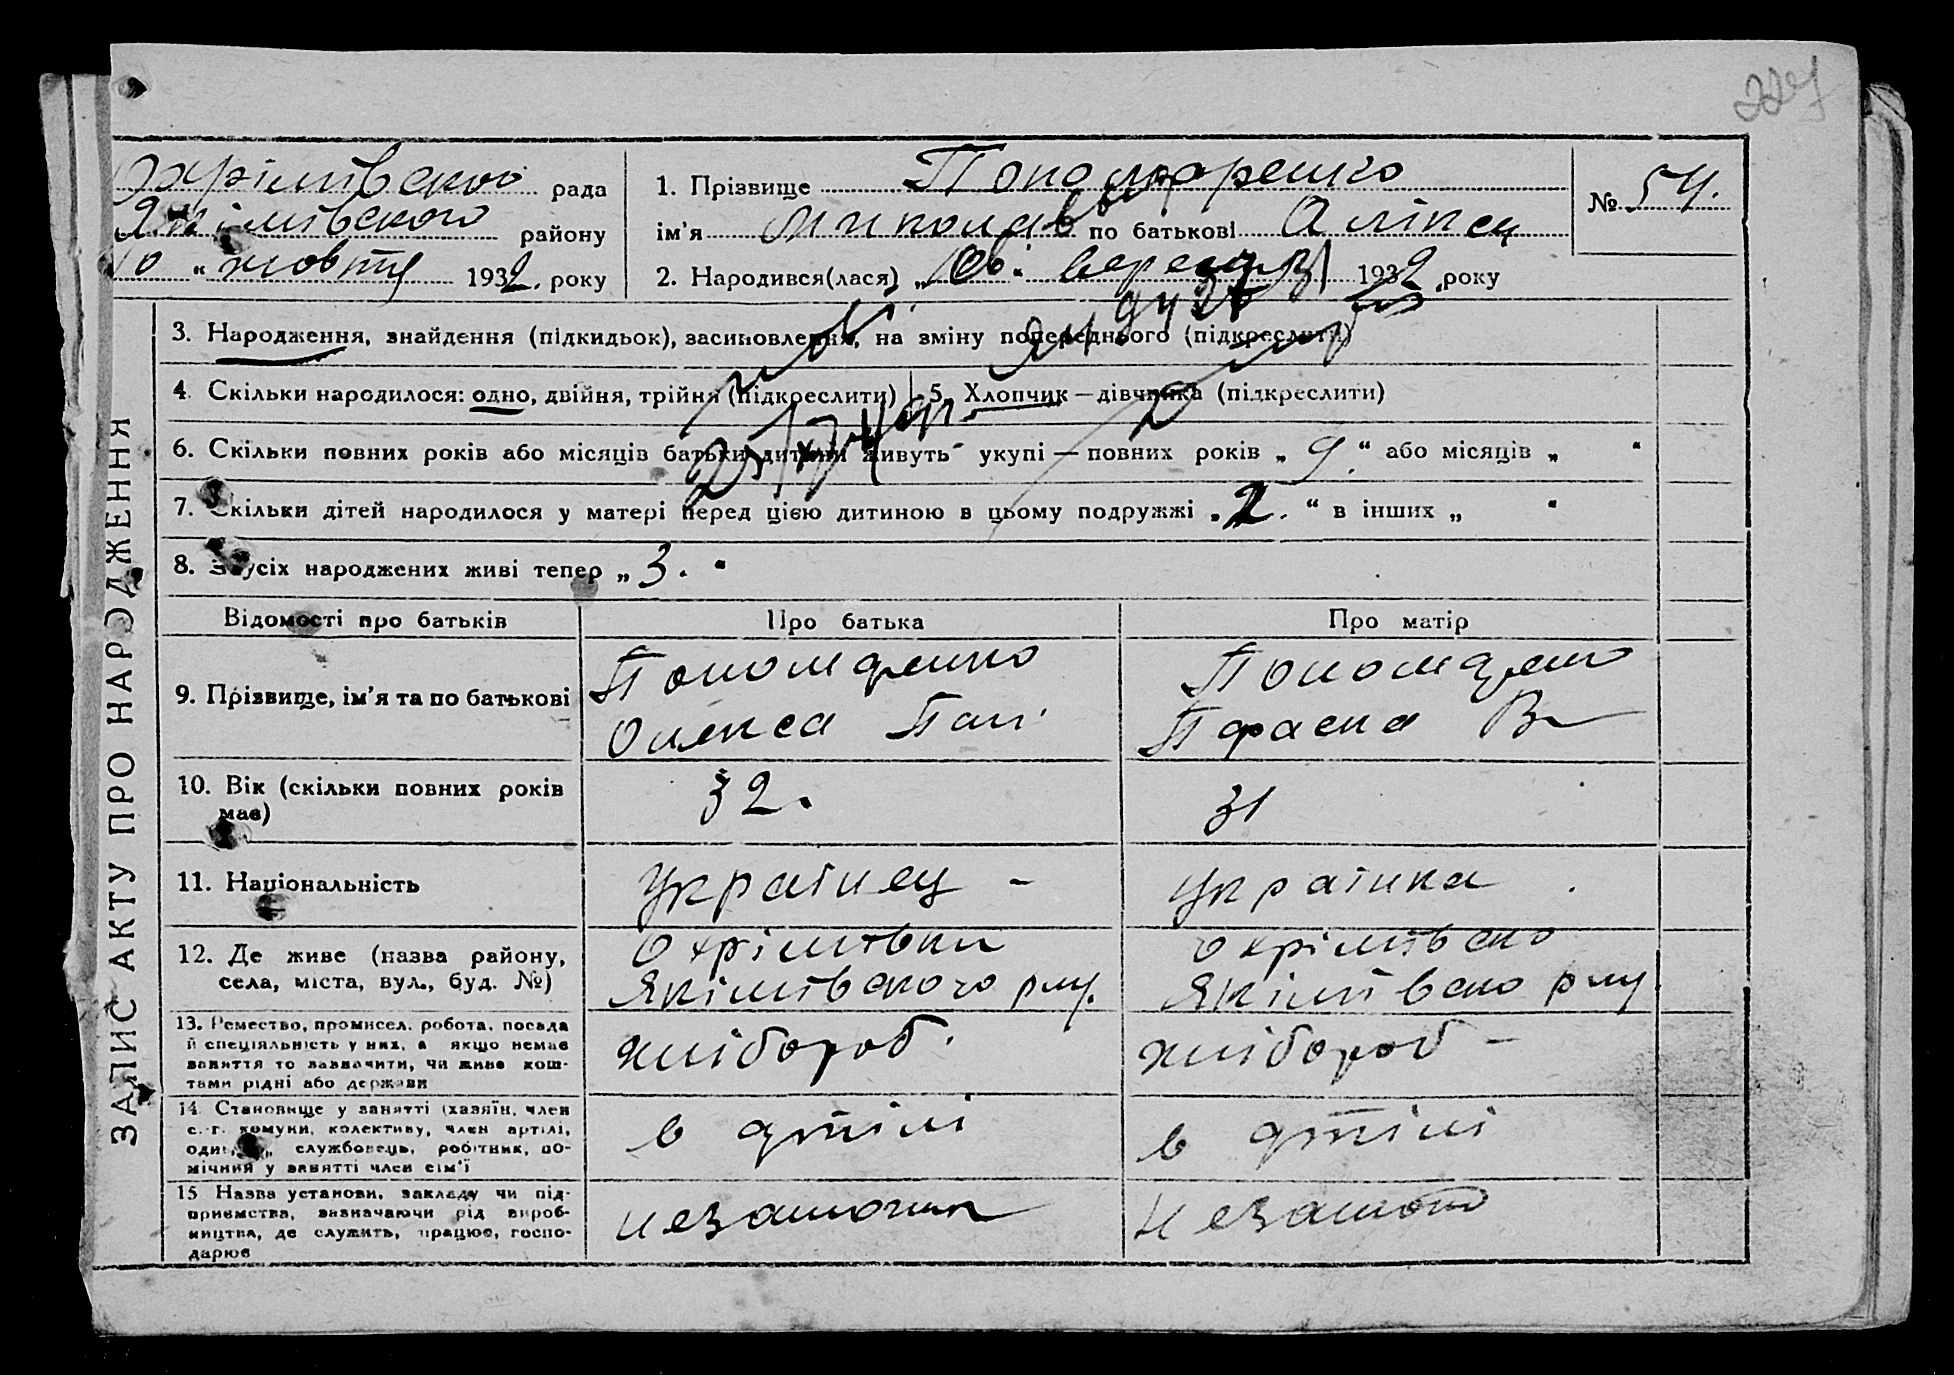 227
Охрімівської рада
Якімівського району
10 " жовтня 1932. року
1. Прізвище Пономаренко
ім'я Миколай по батькові Оліксц
2. Народився(лася) „ 10 " вересня 1932 року
№ 54.
ЗАПИС АКТУ ПРО НАРОДЖЕННЯ
3. Народження, знайдення (підкидьок), засиновлення, на зміну попереднього (підкреслити)
4. Скільки народилося: одно, двійня, трійня (підкреслити) 5. Хлопчик — дівчинка (підкреслити)
6. Скільки повних років або місяців батьки дитини живуть укупі — повних років „ 9. " або місяців „ "
7. Скільки дітей народилося у матері перед цією дитиною в цьому подружжі „ 2. " в інших „ "
8. З усіх народжених живі тепер „ 3. "
Відомості про батьків Про батька Про матір
9. Прізвище, ім'я та по батькові
Пономаренко
Олекса Пав.
Пономаренко
Параска В
10. Вік (скільки повних років має)
32.
31
11. Національність
Українец -
Українка.
12. Де живе (назва району, села, міста, вул., буд. №)
Охрімівки
Якімівского рну.
Охрімівско
Якімівско рну
13. Ремество, промисел, робота, посада
й спеціяльність у них, а якщо немає
заняття то зазначити, чи живе кош-
тами рідні або держави
хлібороб.
хлібороб -
14. Становище у занятті (хазяїн, член
с.-г. комуни, колективу, член артілі,
службовець, робітник, по-
мічний у занятті член сім'ї
в артілі
в артілі
15 Назва установи, закладу чи під-
приємства, зазначаючи рід вироб-
ництва, де служить, працює, госпо-
дарює
незаможник
незаможн